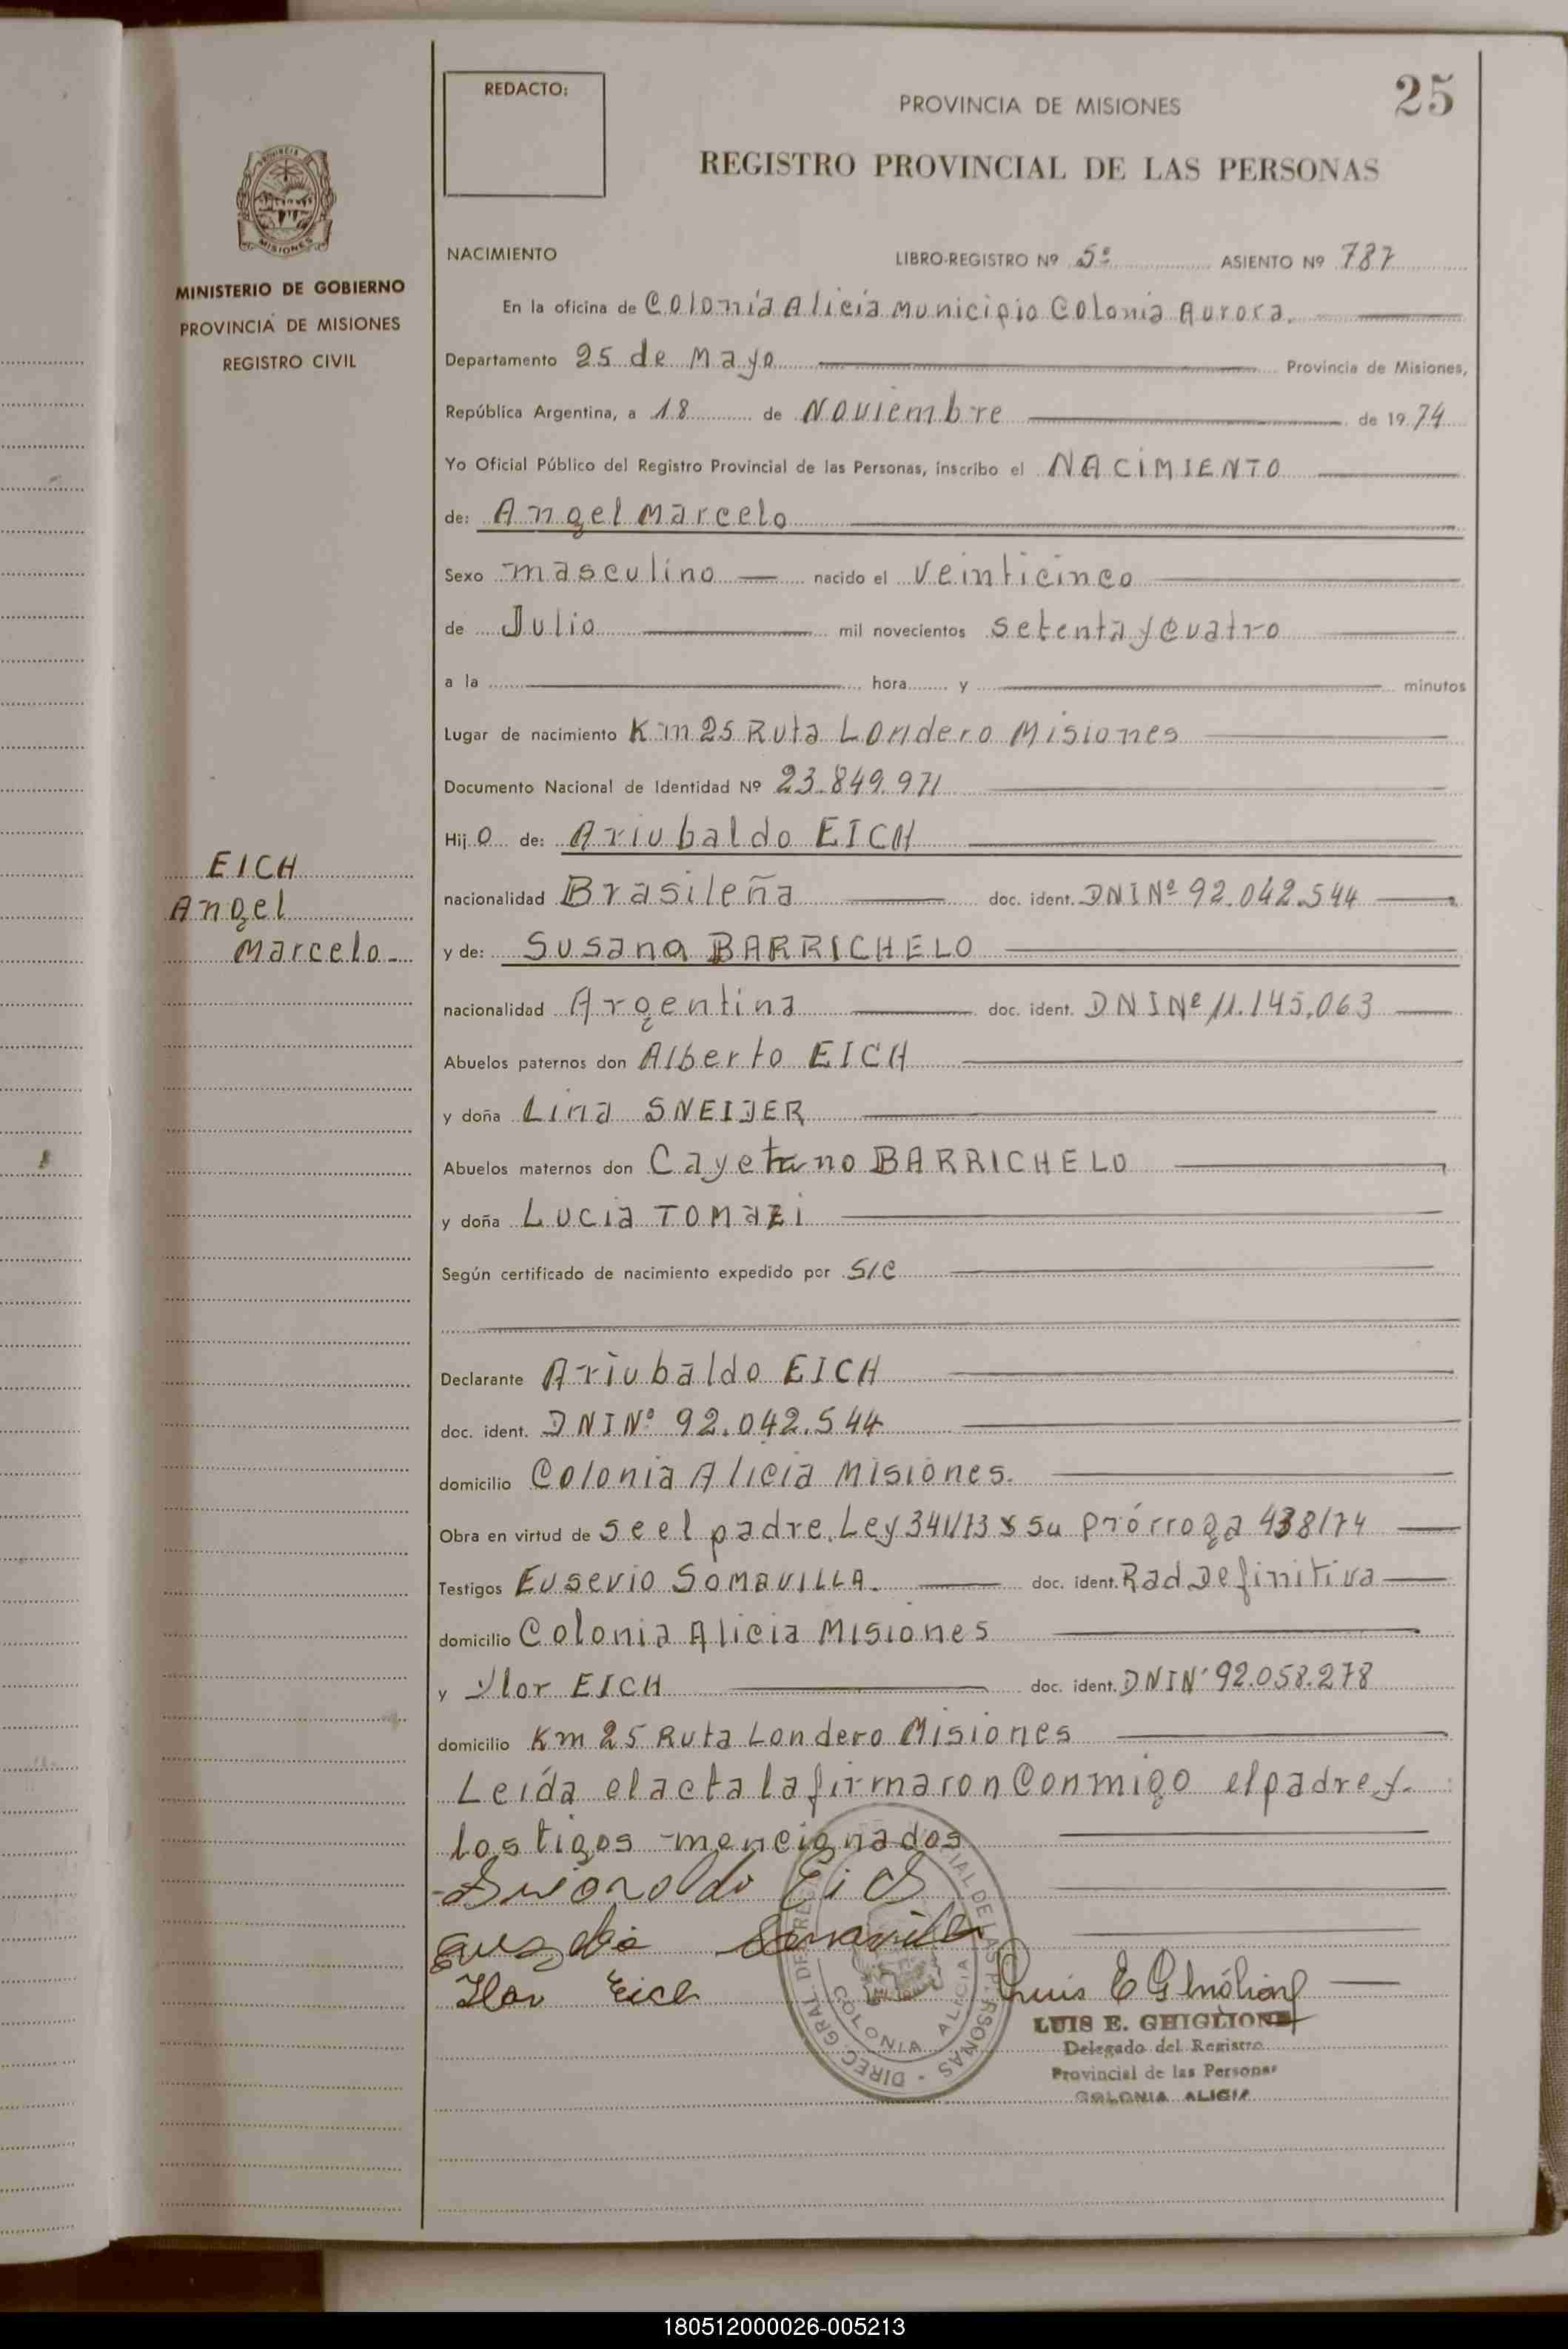 REDACTO:
25
PROVINCIA DE MISIONES
REGISTRO PROVINCIAL DE LAS PERSONAS
PROVINCIA
MISIONES
MINISTERIO DE GOBIERNO
PROVINCIA DE MISIONES
REGISTRO CIVIL
EICH
Angel
Marcelo
NACIMIENTO LIBRO-REGISTRO Nº 5º ASIENTO Nº 787
En la oficina de Colonia Alicia Municipio Colonia Aurora.
Departamento 25 de Mayo Provincia de Misiones,
República Argentina, a 18 de Noviembre de 1974
Yo Oficial Público del Registro Provincial de las Personas, inscribo el NACIMIENTO
de: Angel Marcelo
Sexo masculino nacido el veinticinco
de Julio mil novecientos setenta y cuatro
a la hora y minutos
Lugar de nacimiento Km 25 Ruta Londero Misiones
Documento Nacional de Identidad Nº 23.849.971
Hijo de: Ariubaldo EICH
nacionalidad Brasileña doc. ident. DNI Nº 92.042.544
y de: Susana BARRICHELO
nacionalidad Argentina doc. ident. DNI Nº 11.145.063
Abuelos paternos don Alberto EICH
y doña Lina SNEIJER
Abuelos maternos don Cayetano BARRICHELO
y doña Lucia TOMAZI
Según certificado de nacimiento expedido por S/C
Declarante Ariubaldo EICH
doc. ident. DNI Nº 92.042.544
domicilio Colonia Alicia Misiones.
Obra en virtud de se el padre. Ley 341/73 y su prórroga 438/74
Testigos Eusevio SOMAVILLA. doc. ident. Rad Definitiva
domicilio Colonia Alicia Misiones
y Ilor EICH doc. ident. DNI Nº 92.058.278
domicilio Km 25 Ruta Londero Misiones
Leída el acta la firmaron conmigo el padre y
los tigos mencionados
Eich
Somavilla
Ilor Eich
Luis E Ghiglione
DIREC. GRAL. DE REGISTRO PROVINCIAL DE LAS PERSONAS
COLONIA ALICIA
LUIS E. GHIGLIONE
Delegado del Registro
Provincial de las Personas
COLONIA ALICIA
180512000026-005213